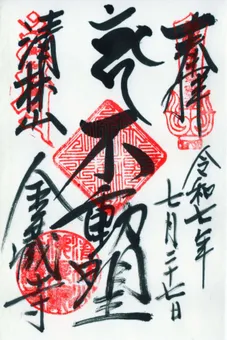 奉拝
令和七年
七月二十七日
不動明王
清林山
金蔵寺